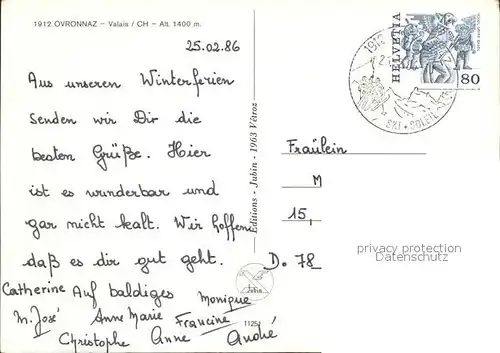 1912 OVRONNAZ – Valais / CH – Alt. 1400 m.
25.02.86
Aus unseren Winterferien
senden wir Dir die
besten Grüße. Hier
ist es wunderbar und
gar nicht kalt. Wir hoffen
daß es dir gut geht.
Auf baldiges
Catherine
Monique
M. José
Anne Marie
Francine
Christophe
Anne
André
Editions - Jubin - 1963 Vétroz
Jubin
HELVETIA
80
1912
SKI • SOLEIL
Fräulein
M
15,
D. 78
privacy protection
Datenschutz